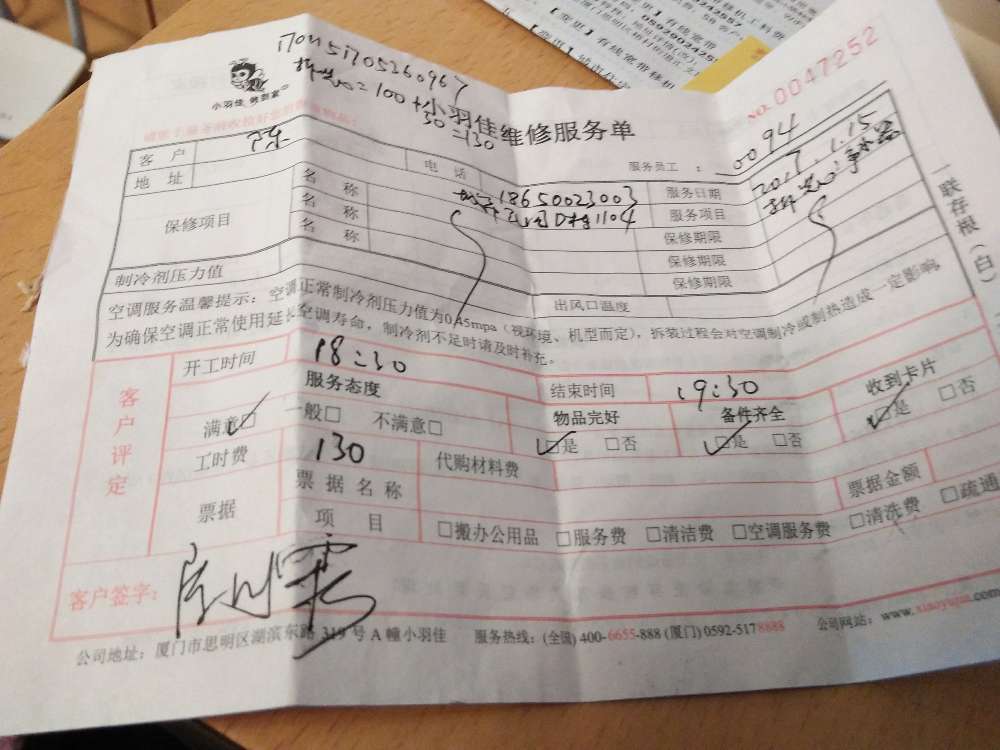 1701151705260967
=100+30=130
小羽佳 帮到家
小羽佳维修服务单
NO. 0047252
客户 陈 电话 18650023003 服务员工: 0094
地址 D1104 服务日期 2017.1.15
保修项目 名称 保修期限 服务项目 净水器
名称 保修期限
名称 保修期限
制冷剂压力值 出风口温度
一联存根(白)
空调服务温馨提示:空调正常制冷剂压力值为0.45mpa(视环境、机型而定),拆装过程会对空调制冷或制热造成一定影响
为确保空调正常使用延长空调寿命,制冷剂不足时请及时补充。
客户评定
开工时间 18:30 结束时间 19:30
服务态度 物品完好 备件齐全 收到卡片
满意□ 一般□ 不满意□ □是 □否 □是 □否 □是 □否
工时费 130 代购材料费
票据 票据名称 票据金额
项目 □搬办公用品 □服务费 □清洁费 □空调服务费 □清洗费 □疏通
客户签字:
公司地址:厦门市思明区湖滨东路319号A幢小羽佳 服务热线:(全国)400-6655-888 (厦门)0592-5178888 公司网站:www.xiaoyujia.com